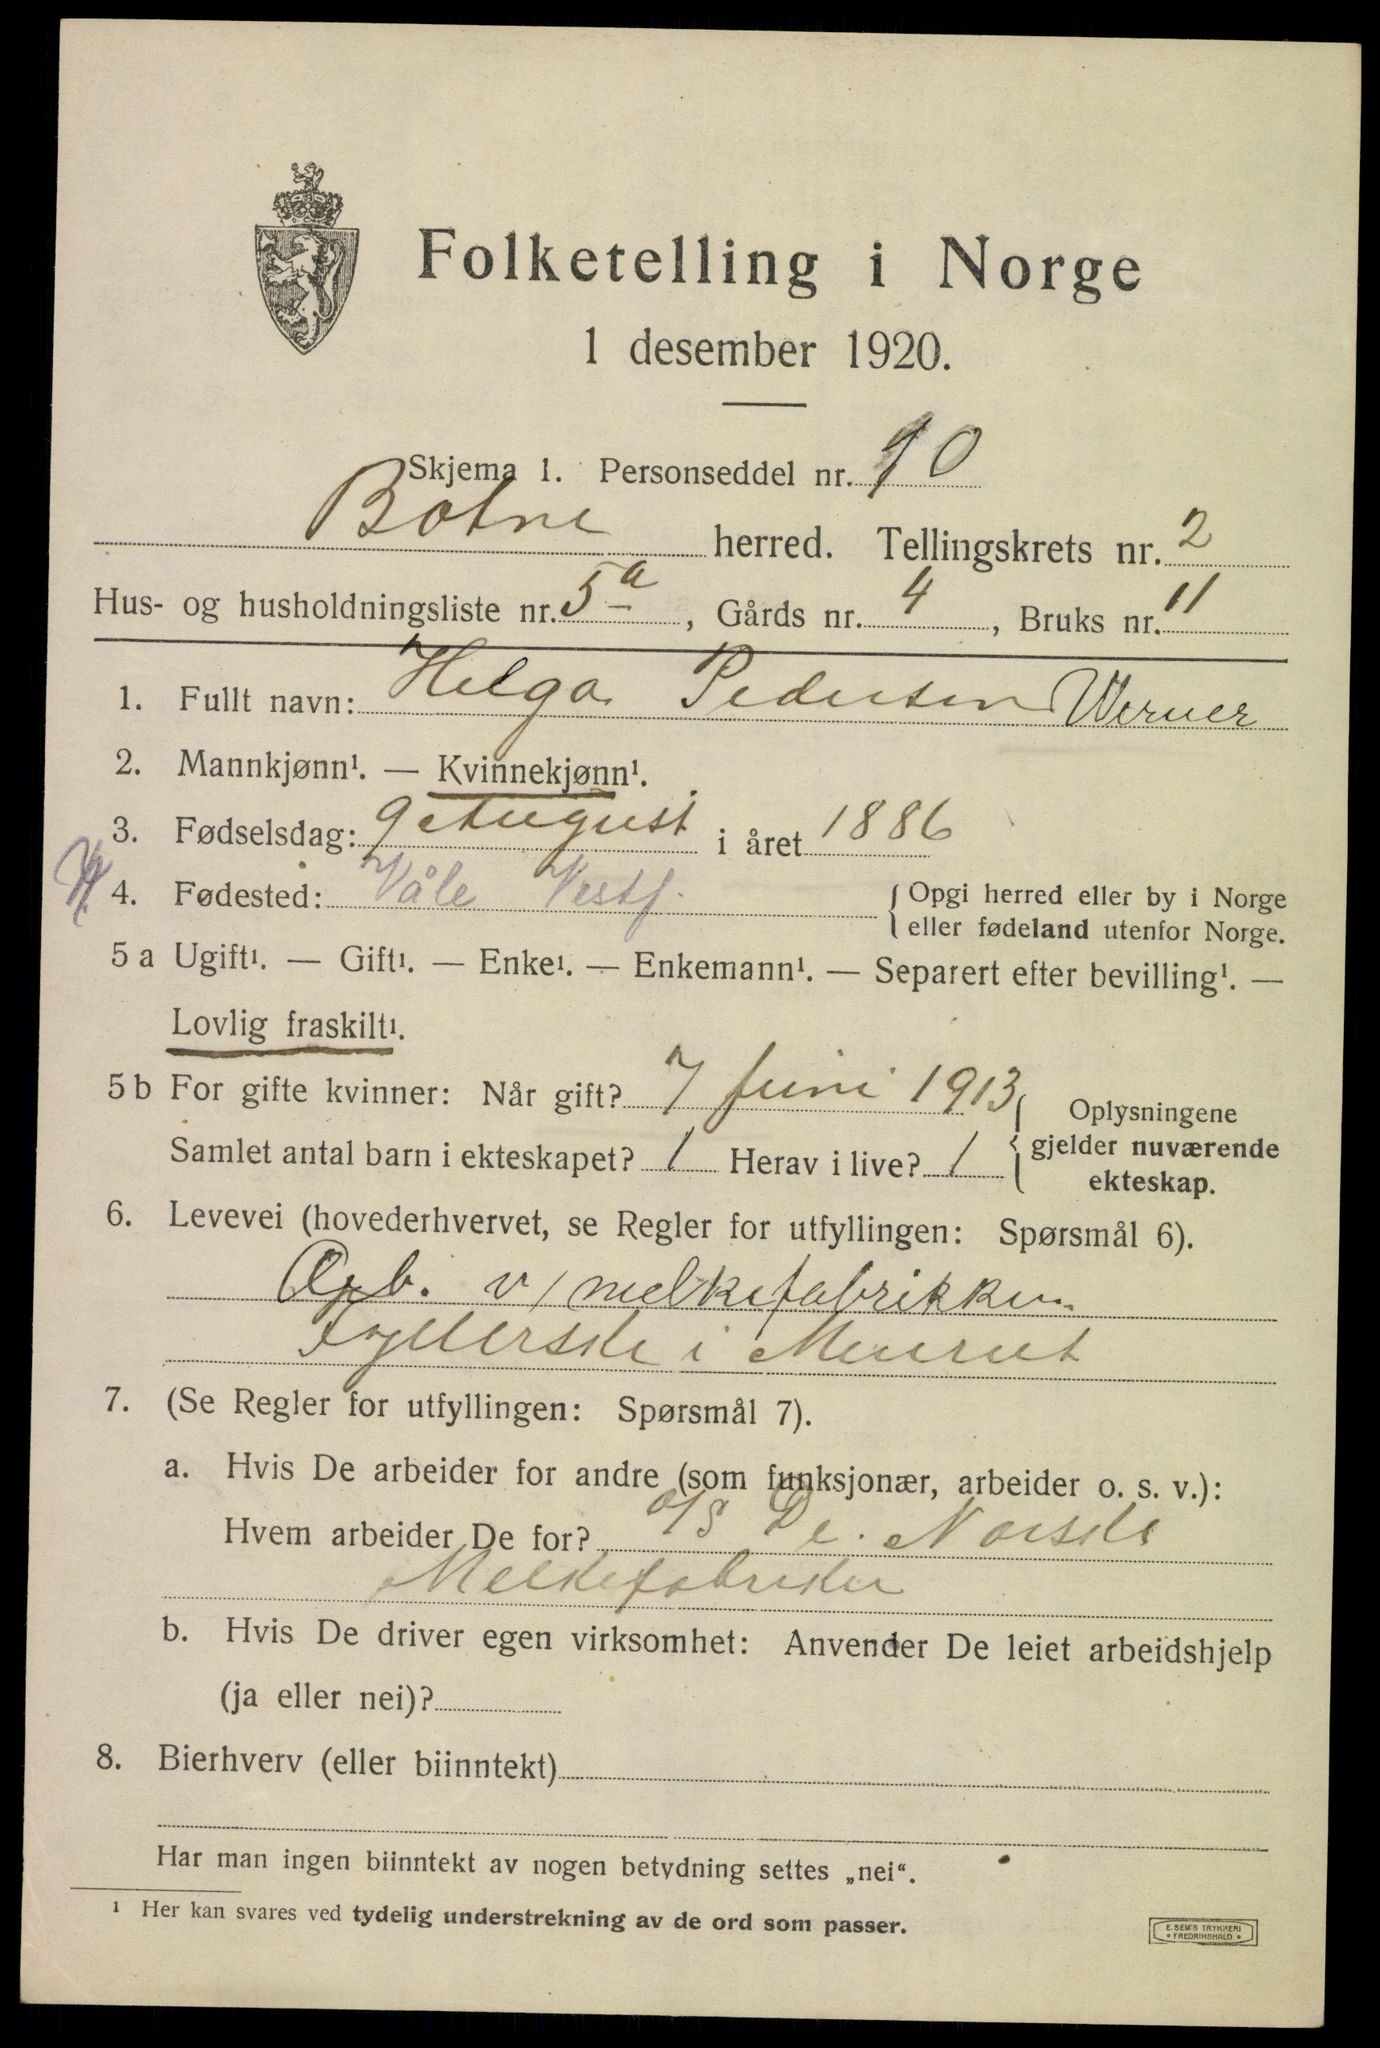 Folketelling i Norge
1 desember 1920.
Skjema 1. Personseddel nr. 10
Botne herred. Tellingskrets nr. 2
Hus- og husholdningsliste nr. 5a, Gårds nr. 4, Bruks nr. 11
1. Fullt navn: Helga Pedersen Werner
2. Mannkjønn¹. — Kvinnekjønn¹.
3. Fødselsdag: 9 August i året 1886
4. Fødested: Våle Vestf. { Opgi herred eller by i Norge
eller fødeland utenfor Norge.
5 a Ugift¹. — Gift¹. — Enke¹. — Enkemann¹. — Separert efter bevilling¹. —
Lovlig fraskilt¹.
5 b For gifte kvinner: Når gift? 7 Juni 1913 { Oplysningene
Samlet antal barn i ekteskapet? 1 Herav i live? 1 gjelder nuværende
ekteskap.
6. Levevei (hovederhvervet, se Regler for utfyllingen: Spørsmål 6).
Arb. v/ melkefabrikken
i
7. (Se Regler for utfyllingen: Spørsmål 7).
a. Hvis De arbeider for andre (som funksjonær, arbeider o. s. v.):
Hvem arbeider De for? a/s De. Norske
Melkefabriker
b. Hvis De driver egen virksomhet: Anvender De leiet arbeidshjelp
(ja eller nei)?
8. Bierhverv (eller biinntekt)
Har man ingen biinntekt av nogen betydning settes „nei“.
¹ Her kan svares ved tydelig understrekning av de ord som passer.
E. SEM'S TRYKKERI
• FREDRIKSHALD •